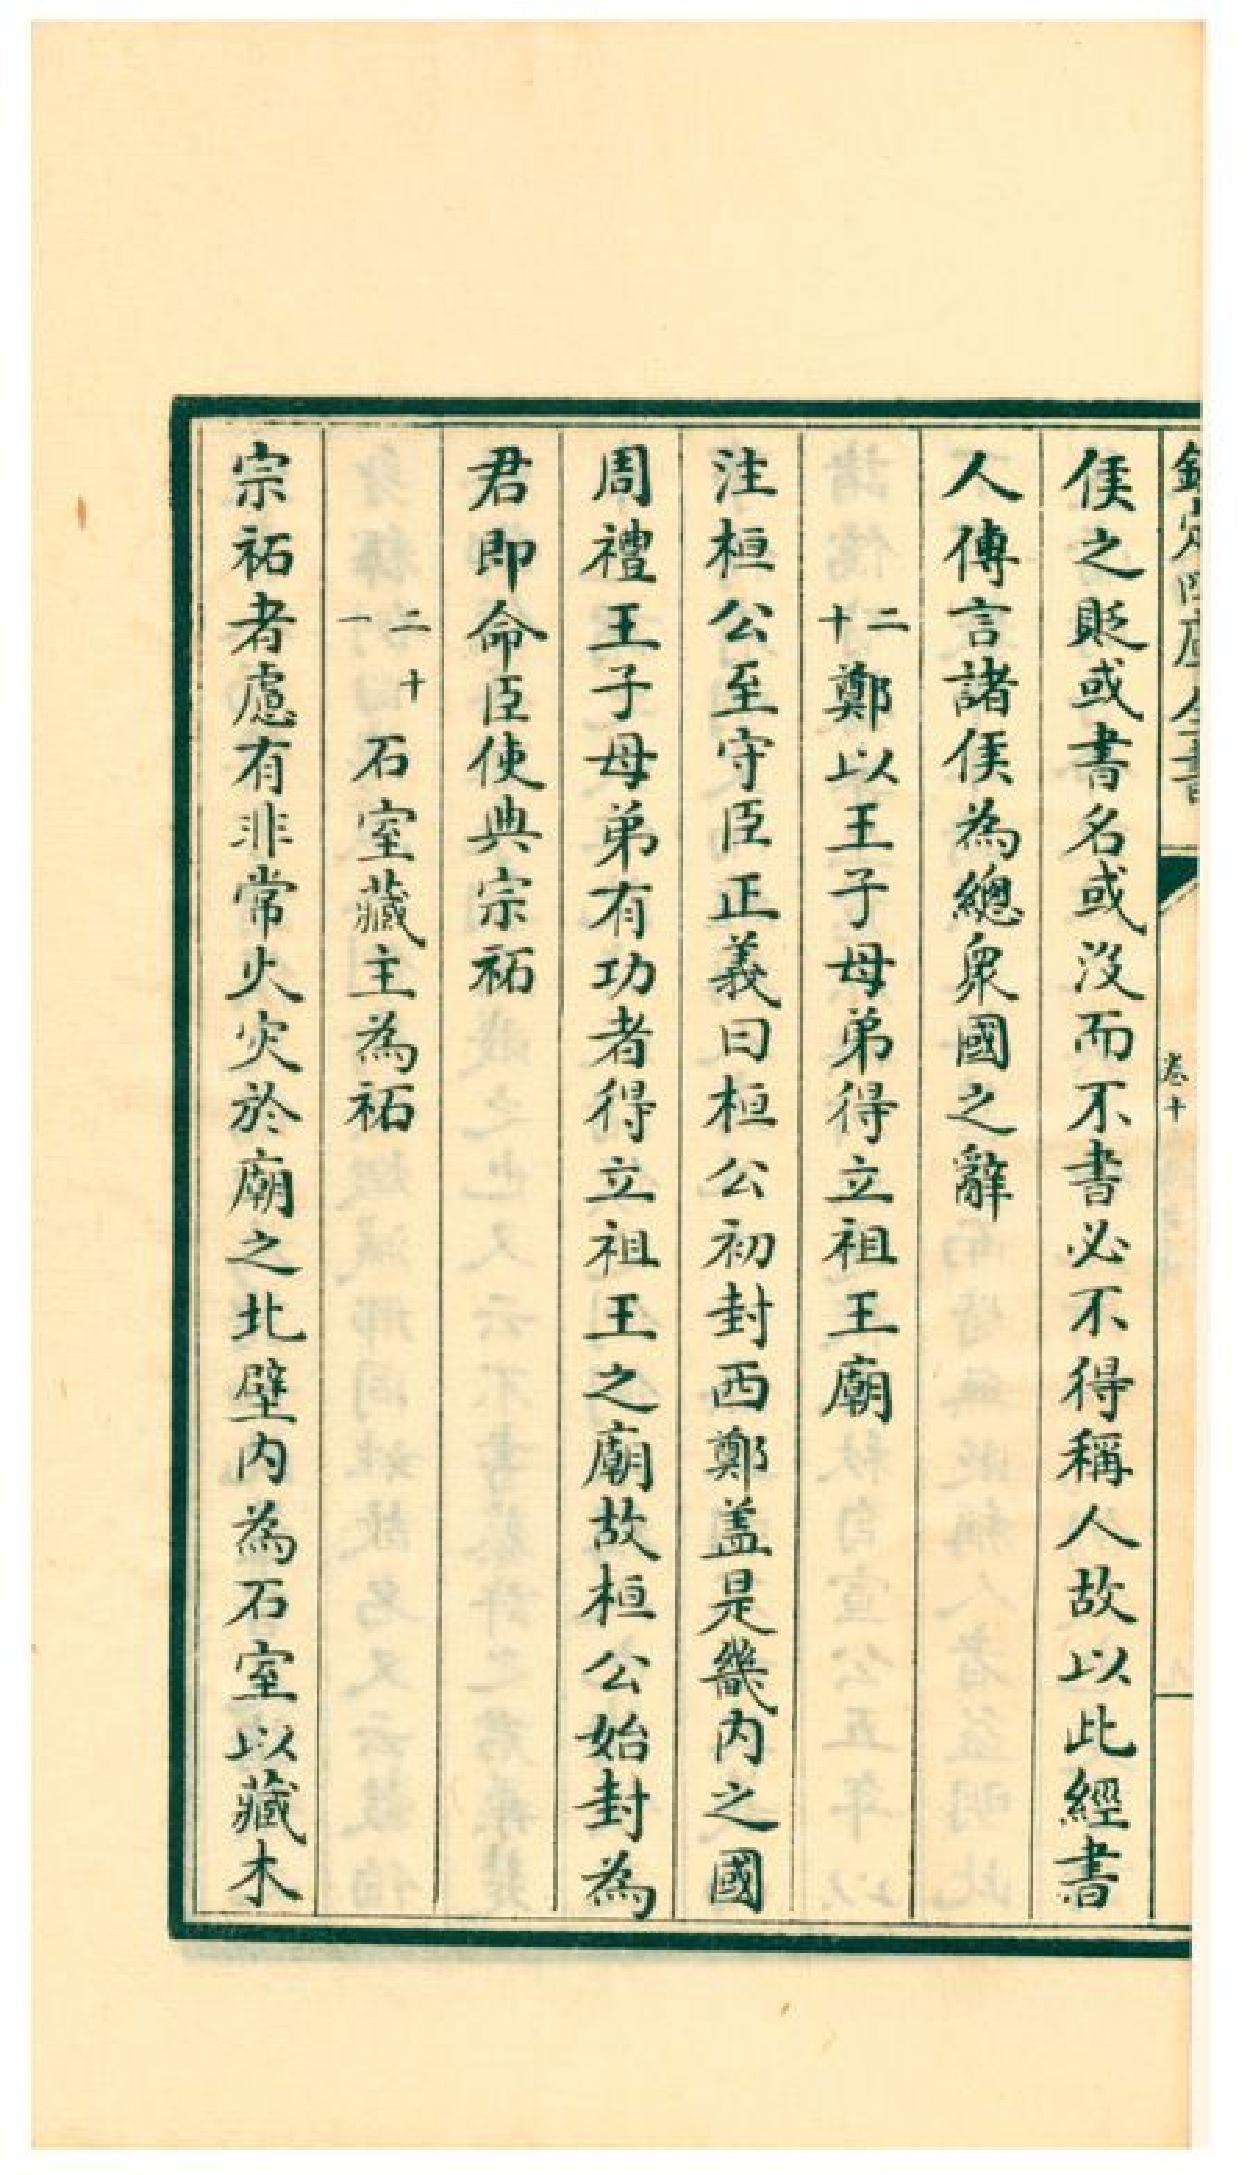 欽定四庫全書
卷十
侯之貶或書名或沒而不書必不得稱人故以此經書
人傳言諸侯為總衆國之辭
二十鄭以王子母弟得立祖王廟
注桓公至守臣正義曰桓公初封西鄭盖是畿内之國
周禮王子母弟有功者得立祖王之廟故桓公始封為
君即命臣使典宗祏
二十一石室藏主為祏
宗祏者慮有非常火灾於廟之北壁内為石室以藏木